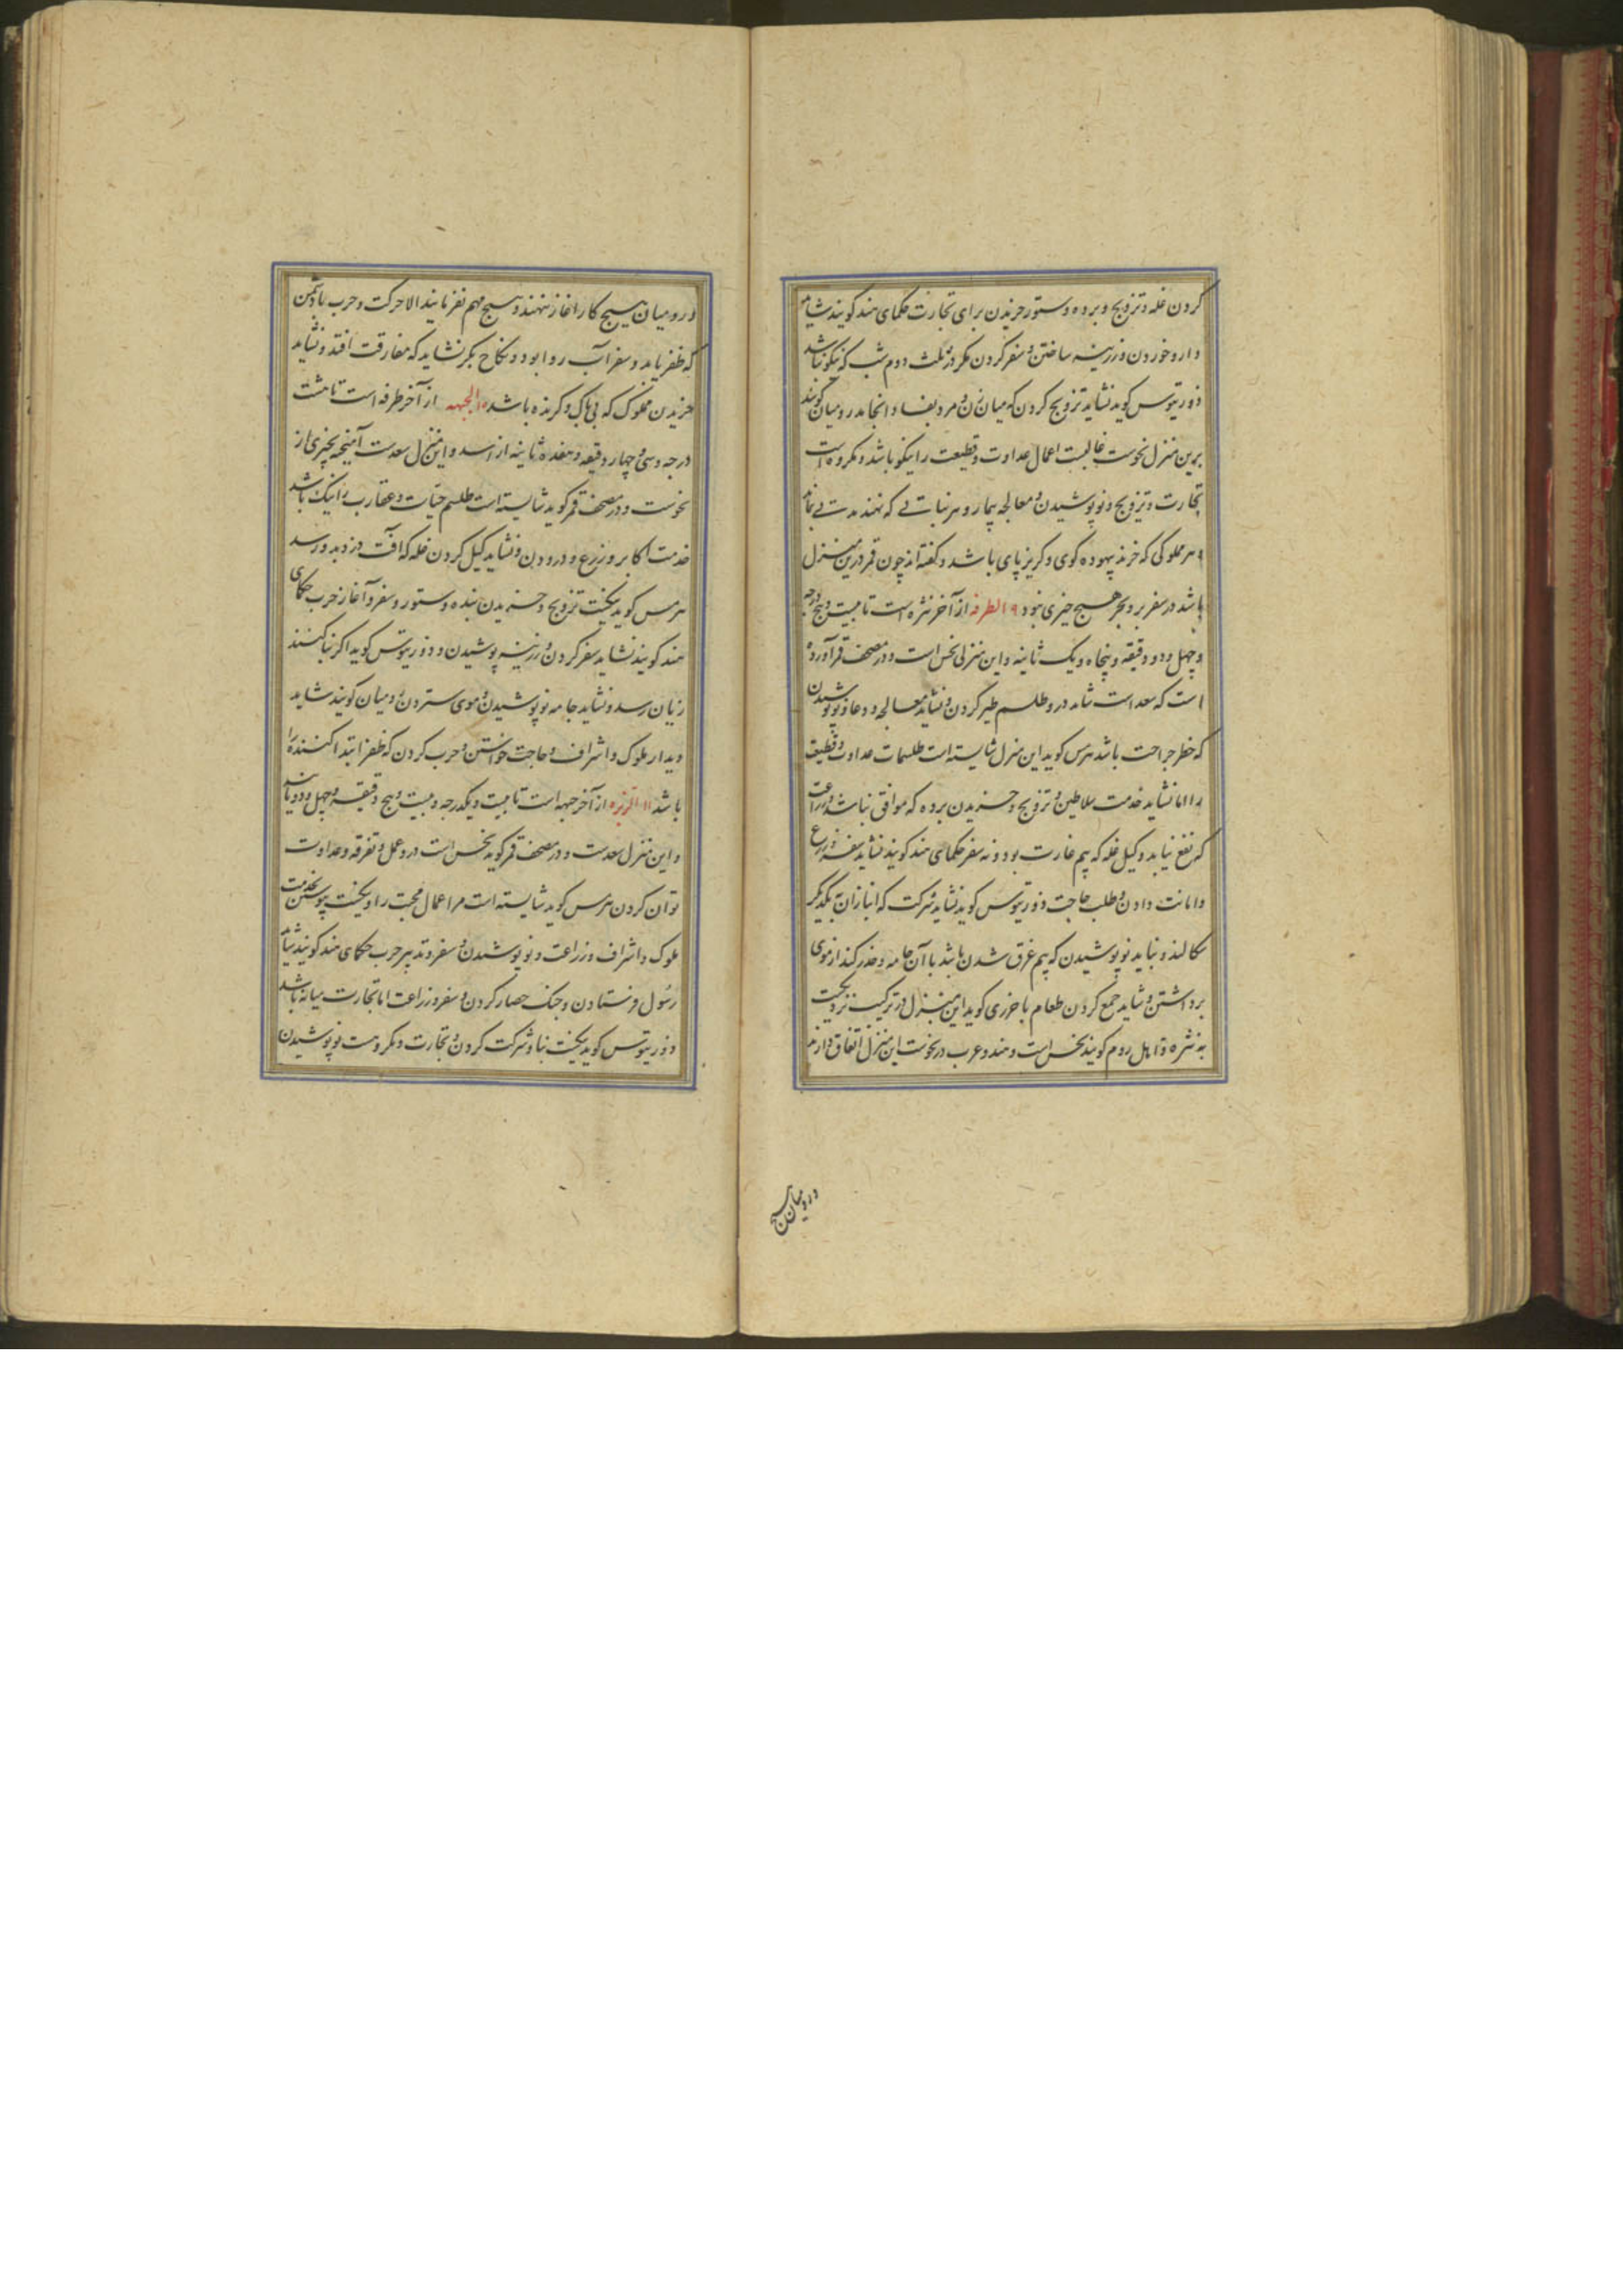 کردن غله و تزویج و برده و ستور خریدن برای تجارت حکمای هند کویند شاید
دارو خوردن و زرینه ساختن و سفر کردن مکر در ثلث دوم شب که نیکو نباشد
ذوریتوس کوید نشاید تزویج کردن که میان زن و مرد بفساد انجامد رومیان کویند
برین منزل نحوست غالبست اعمال عداوت و قطیعت را نیکو باشد و مکروه است
تجارت و تزویج و نو پوشیدن و معالجه بیمار و هر نباتی که نهند مدتی بماند
و هر مملوکی که خرند بیهوده کوی و کریزپای باشد و کفته اند چون قمر درین منزل
باشد در سفر بر و بحر هیچ خیری نبود ۹ الطرفه از آخر نثره است تا بیست و پنج درجه
و چهل و دو دقیقه و پنجاه و یک ثانیه و این منزلی نحس است و در مصحف قمر آورده
است که سعد است شاید درو طلسم طیر کردن و نشاید معالجه و دعا و نو پوشیدن
که خطر جراحت باشد هرمس کوید این منزل شایسته است طلسمات عداوت و قطیعت
را اما نشاید خدمت سلاطین و تزویج و خریدن برده که موافق نباشد و زراعت
که نفع نیابد و کیل غله که بیم غارت بود و نه سفر حکمای هند کویند نشاید سفر و زرع
و امانت دادن و طلب حاجت ذوریتوس کوید نشاید شرکت که انبازان بیکدیگر
سکالند و نباید نو پوشیدن که بیم غرق شدن باشد با آن جامه و حذر کند از موی
برداشتن و شاید جمع کردن طعام باخرزی کوید این منزل در ترکیب نزدیکیت
به نثره و اهل روم کویند نحس است و هند و عرب در نحوست این منزل اتفاق دارند
درو میان هیچ
درو میان هیچ کار آغاز ننهند و هیچ مهم نفرمایند الا حرکت و حرب با دشمن
که ظفر یابد و سفر آب روا بود و نکاح بکر نشاید که مفارقت افتد و نشاید
خریدن مملوک که بی باک و کریزنده باشد ۱۰ الجبهه از آخر طرفه است تا هشت
درجه و سی و چهار دقیقه و هفده ثانیه از اسد و این منزل سعدست آمیخته بچیزی از
نحوست و در مصحف قمر کوید شایسته است طلسم حیات و عقارب را نیک باشد
خدمت اکابر و زرع و درودن و نشاید کیل کردن غله که آفت دزد بدو رسد
هرمس کوید نیکست تزویج و خریدن بنده و ستور و سفر و آغاز حرب حکمای
هند کویند نشاید سفر کردن و زرینه پوشیدن و ذوریتوس کوید اکر بنا کنند
زیان رسد و نشاید جامه نو پوشیدن و موی ستردن رومیان کویند شاید
دیدار ملوک و اشراف و حاجت خواستن و حرب کردن که ظفر ابتدا کننده را
باشد ۱۱ الزبره از آخر جبهه است تا بیست و یکدرجه و بیست و پنج دقیقه و چهل و دو ثانیه
و این منزل سعدست و در مصحف قمر کوید نحس است درو عمل و تفرقه و عداوت
توان کردن هرمس کوید شایسته است مر اعمال محبت را و نیکست پیوستن بخدمت
ملوک و اشراف و زراعت و نو پوشیدن و سفر و تدبیر حرب حکمای هند کویند شاید
رسول فرستادن و جنک حصار کردن و سفر و زراعت اما تجارت میانه باشد
ذوریتوس کوید نیکست بنا و شرکت کردن و تجارت و مکروهست نو پوشیدن